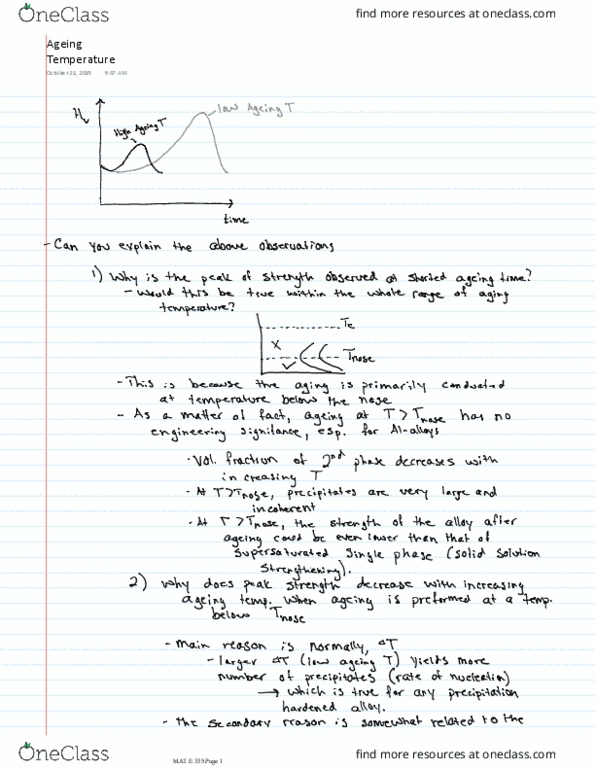 OneClass
find more resources at oneclass.com
Ageing
Temperature
October 23, 2015 9:07 AM
Hv
High Ageing T
low Ageing T
time
- Can you explain the above observations
1) Why is the peak of strength observed at shorted ageing time?
- would this be true within the whole range of aging
temperature?
Te
X
Tnose
✓
- This is because the aging is primarily conducted
at temperature below the nose
- As a matter of fact, ageing at T > Tnose has no
engineering signifance, esp. for Al-alloys
· Vol. fraction of 2nd phase decreases with
increasing T
- At T>Tnose, precipitates are very large and
incoherent
· At T > Tnose, the strength of the alloy after
ageing could be even lower than that of
supersaturated single phase (solid solution
strengthening).
2) Why does peak strength decrease with increasing
ageing temp. when ageing is preformed at a temp.
below Tnose
- main reason is normally, ΔT
- larger ΔT (low ageing T) yields more
number of precipitates (rate of nucleation)
→ which is true for any precipitation
hardened alloy.
- the secondary reason is somewhat related to the
OneClass
MAT E 335 Page 1
find more resources at oneclass.com